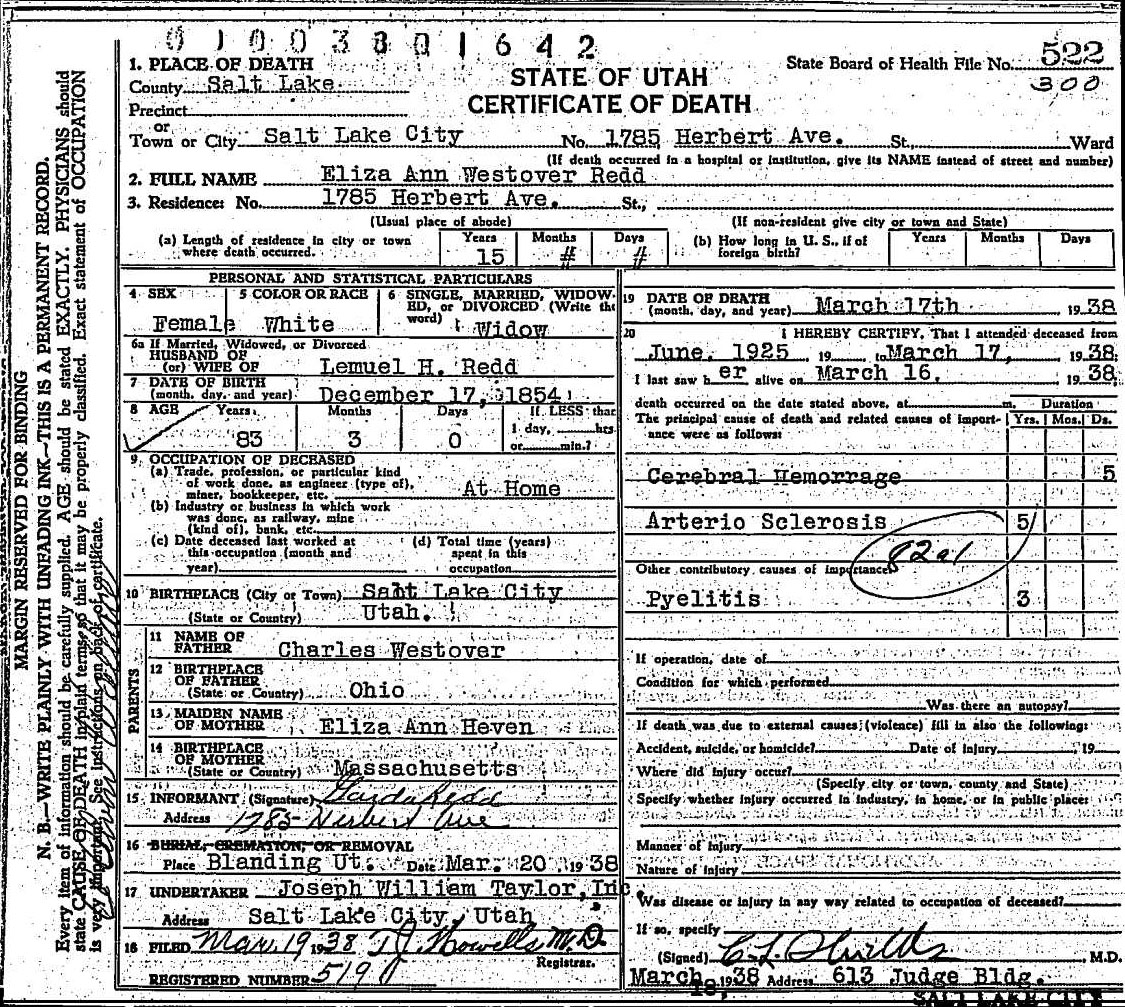 0 1 0 0 3 8 0 1 6 4 2
1. PLACE OF DEATH
County Salt Lake
Precinct
or
Town or City Salt Lake City No. 1785 Herbert Ave. St., Ward
STATE OF UTAH
CERTIFICATE OF DEATH
State Board of Health File No. 522
300
(If death occurred in a hospital or institution, give its NAME instead of street and number)
2. FULL NAME Eliza Ann Westover Redd
3. Residence: No. 1785 Herbert Ave. St.,
(Usual place of abode) (If non-resident give city or town and State)
(a) Length of residence in city or town where death occurred. Years 15 Months # Days #
(b) How long in U. S., if of foreign birth? Years Months Days
PERSONAL AND STATISTICAL PARTICULARS
4 SEX Female
5 COLOR OR RACE White
6 SINGLE, MARRIED, WIDOWED, or DIVORCED (Write the word) Widow
6a If Married, Widowed, or Divorced
HUSBAND OF
(or) WIFE OF Lemuel H. Redd
7 DATE OF BIRTH
(month, day, and year) December 17, 1854
8 AGE Years 83 Months 3 Days 0 If LESS than 1 day, hrs or min.?
9. OCCUPATION OF DECEASED
(a) Trade, profession, or particular kind of work done, as engineer (type of), miner, bookkeeper, etc. At Home
(b) Industry or business in which work was done, as railway, mine (kind of), bank, etc.
(c) Date deceased last worked at this occupation (month and year)
(d) Total time (years) spent in this occupation
10 BIRTHPLACE (City or Town) Salt Lake City
(State or Country) Utah.
PARENTS
11 NAME OF FATHER Charles Westover
12 BIRTHPLACE OF FATHER
(State or Country) Ohio
13 MAIDEN NAME OF MOTHER Eliza Ann Heven
14 BIRTHPLACE OF MOTHER
(State or Country) Massachusetts
15 INFORMANT (Signature) Redd
Address 1785 Herbert Ave
16 BURIAL, CREMATION, OR REMOVAL
Place Blanding Ut. Date Mar. 20 1938
17 UNDERTAKER Joseph William Taylor, Inc.
Address Salt Lake City, Utah
18 FILED Mar. 19 1938 T J Howells M.D.
Registrar.
REGISTERED NUMBER 519
19 DATE OF DEATH
(month, day, and year) March 17th 1938
20 I HEREBY CERTIFY, That I attended deceased from
June, 1925 19 to March 17, 1938
I last saw her alive on March 16. 1938
death occurred on the date stated above, at m. Duration
The principal cause of death and related causes of importance were as follows: Yrs. Mos. Ds.
Cerebral Hemorrage 5
Arterio Sclerosis 5
82a1
Other contributory causes of importance
Pyelitis 3
If operation, date of
Condition for which performed
Was there an autopsy?
If death was due to external causes (violence) fill in also the following:
Accident, suicide, or homicide? Date of Injury 19
Where did injury occur?
(Specify city or town, county and State)
Specify whether injury occurred in industry, in home, or in public place:
Manner of Injury
Nature of Injury
Was disease or injury in any way related to occupation of deceased?
If so, specify
(Signed) C L Shields M.D.
March 18, 1938 Address 613 Judge Bldg.
SALT LAKE CITY
MARGIN RESERVED FOR BINDING
N. B.—WRITE PLAINLY WITH UNFADING INK—THIS IS A PERMANENT RECORD.
Every item of information should be carefully supplied. AGE should be stated EXACTLY. PHYSICIANS should
state CAUSE OF DEATH in plain terms, so that it may be properly classified. Exact statement of OCCUPATION
is very important. See instructions on back of certificate.